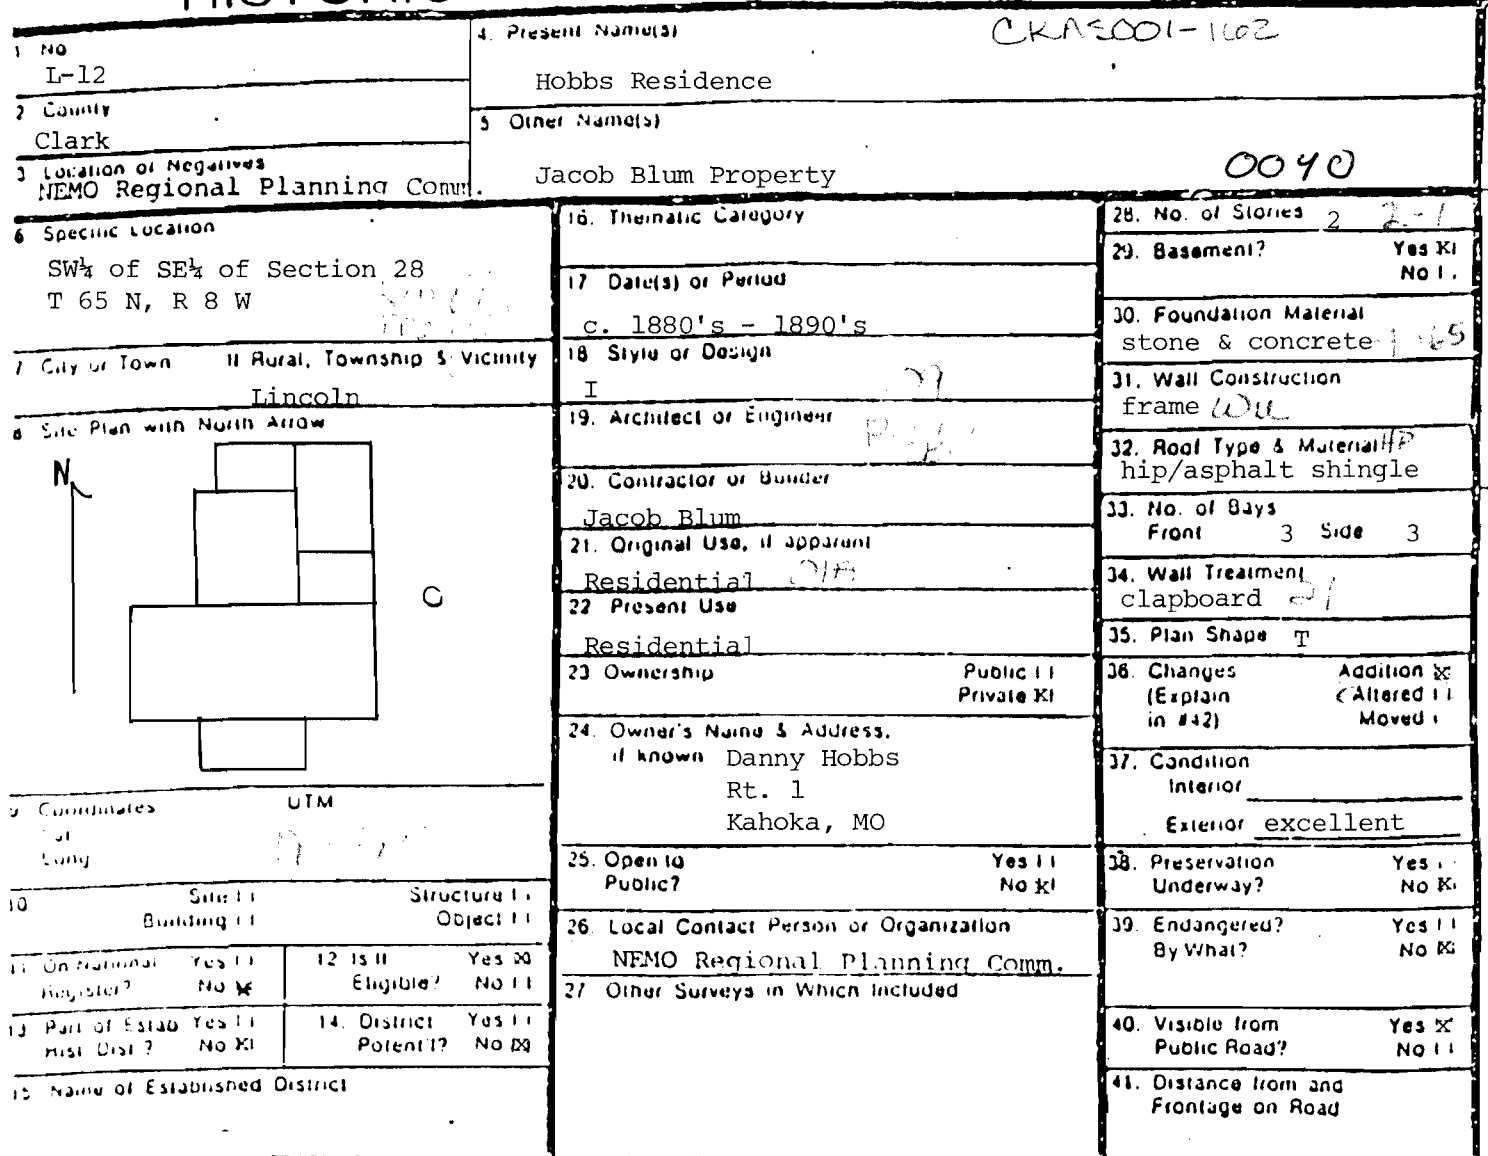 1 No
L-12
2 County
Clark
3 Location of Negatives
NEMO Regional Planning Comm.
4. Present Name(s)
CKAS001-1162
Hobbs Residence
5 Other Name(s)
Jacob Blum Property
0040
6 Specific Location
SW¼ of SE¼ of Section 28
T 65 N, R 8 W
7 City or Town If Rural, Township & Vicinity
Lincoln
8 Site Plan with North Arrow
N
9 Coordinates UTM
Lat
Long
10 Site Structure
Building Object
11 On National Yes
Register? No X
12 Is It Yes X
Eligible? No
13 Part of Estab Yes
Hist Dist ? No X
14. District Yes
Potent'l? No X
15 Name of Established District
16. Thematic Category
17 Date(s) or Period
c. 1880's - 1890's
18 Style or Design
I
19. Architect or Engineer
20. Contractor or Builder
Jacob Blum
21. Original Use, if apparent
Residential
22 Present Use
Residential
23 Ownership Public
Private X
24. Owner's Name & Address,
if known Danny Hobbs
Rt. 1
Kahoka, MO
25. Open to Yes
Public? No X
26. Local Contact Person or Organization
NEMO Regional Planning Comm.
27 Other Surveys in Which Included
28. No. of Stories 2
29. Basement? Yes X
No
30. Foundation Material
stone & concrete 65
31. Wall Construction
frame
32. Roof Type & Material HP
hip/asphalt shingle
33. No. of Bays
Front 3 Side 3
34. Wall Treatment
clapboard 21
35. Plan Shape T
36. Changes Addition X
(Explain Altered
in #42) Moved
37. Condition
Interior
Exterior excellent
38. Preservation Yes
Underway? No X
39. Endangered? Yes
By What? No X
40. Visible from Yes X
Public Road? No
41. Distance from and
Frontage on Road